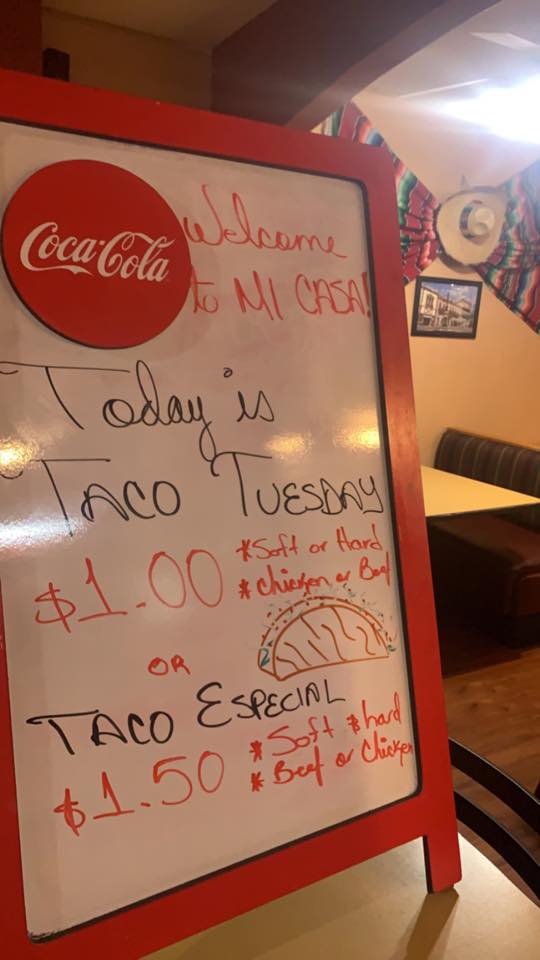 Coca-Cola
Welcome
to MI CASA!
Today is
TACO TUESDAY
$1.00
*Soft or Hard
*Chicken or Beef
OR
TACO ESPECIAL
$1.50
*Soft & hard
*Beef or Chicken